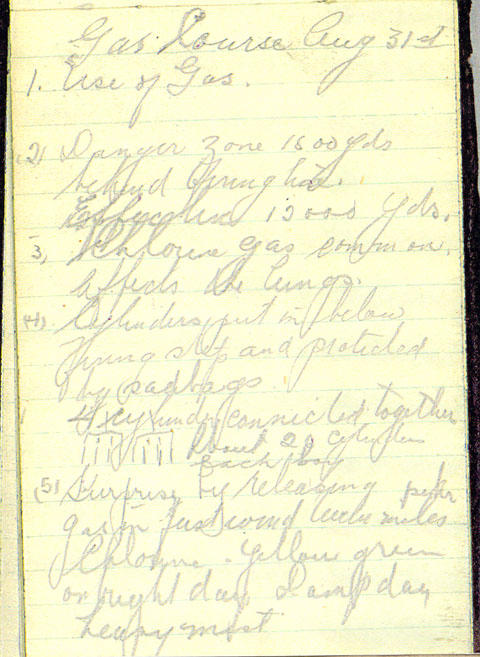 Gas Course Aug 31st
1. Use of Gas.
(2) Danger Zone 1500 yds
behind firing line.
12000 yds.
3, Chlorine gas common.
Affects the lungs.
(4) Cylinders put in below
firing step and protected
by sandbags
4 cylinders connected together
About 20 cylinders
each bay
(5) Surprise by releasing
gas in fast wind miles
Chlorine. Yellow green
on bright day Damp day
heavy mist